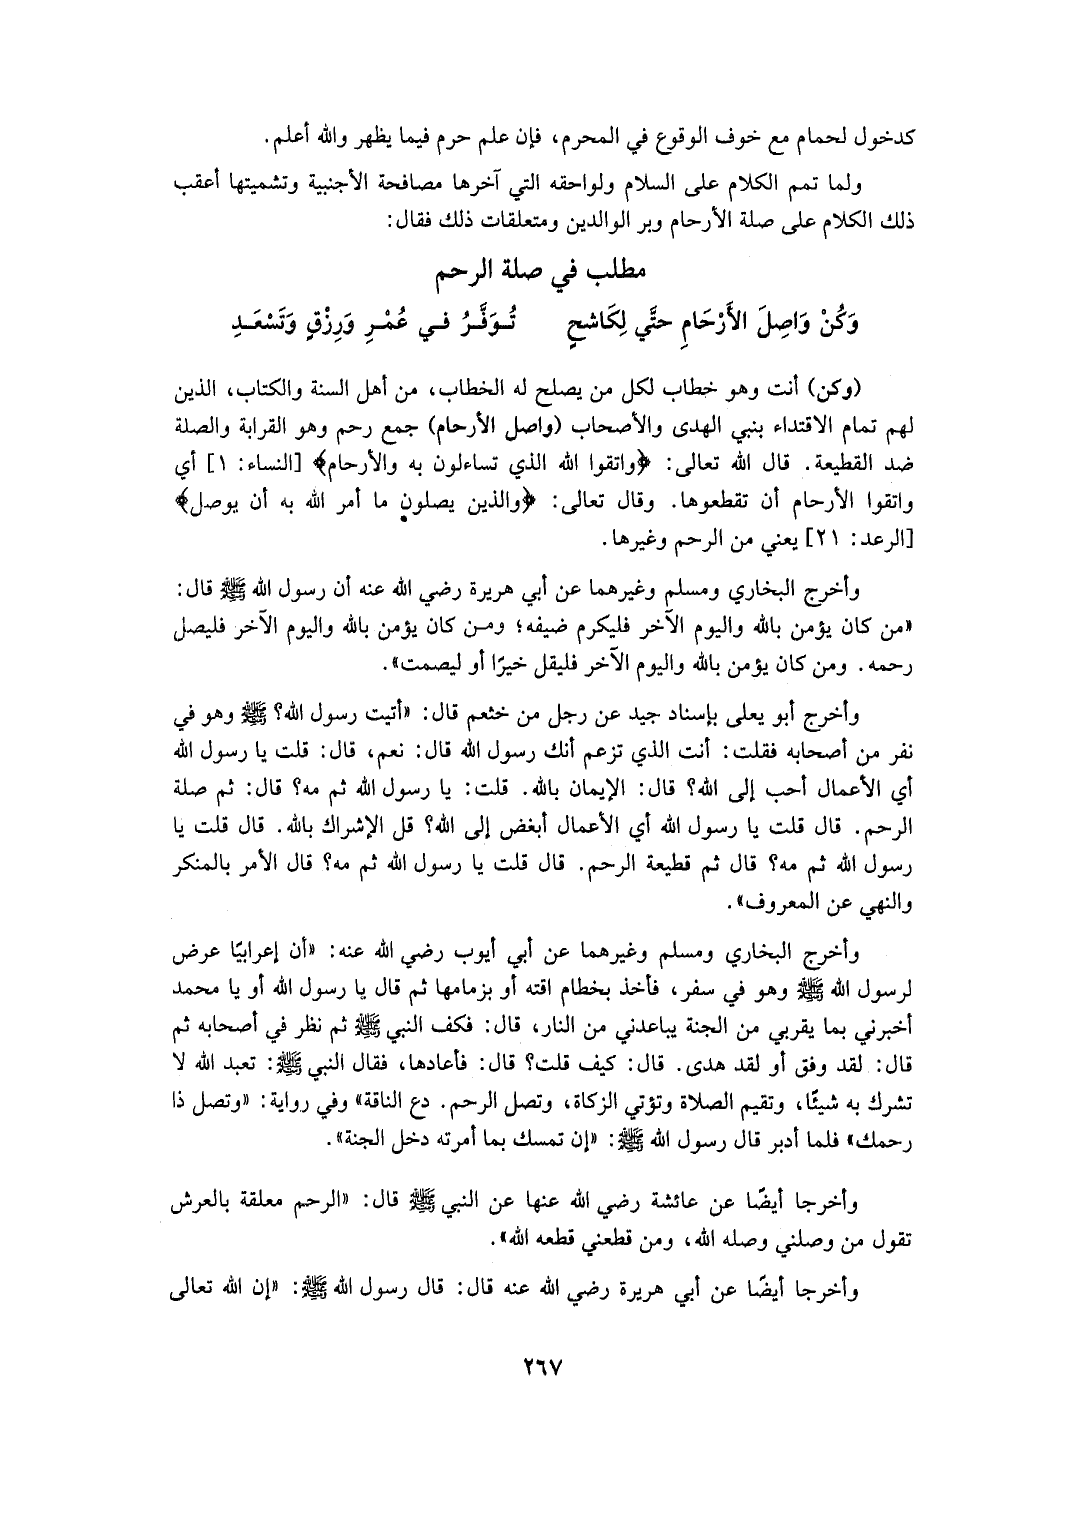 كدخول لحمام مع خوف الوقوع في المحرم، فإن علم حرم فيما يظهر والله أعلم.
ولما تمم الكلام على السلام ولواحقه التي آخرها مصافحة الأجنبية وتشميتها أعقب
ذلك الكلام على صلة الأرحام وبر الوالدين ومتعلقات ذلك فقال:
مطلب في صلة الرحم
وَكُنْ وَاصِلَ الأَرْحَامِ حتَّي لِكَاشحٍ تُـوَفَّـرُ فـي عُمْـرِ وَرِزْقٍ وَتَسْعَـدِ
(وكن) أنت وهو خطاب لكل من يصلح له الخطاب، من أهل السنة والكتاب، الذين
لهم تمام الاقتداء بنبي الهدى والأصحاب (واصل الأرحام) جمع رحم وهو القرابة والصلة
ضد القطيعة. قال الله تعالى: ﴿واتقوا الله الذي تساءلون به والأرحام﴾ [النساء: ١] أي
واتقوا الأرحام أن تقطعوها. وقال تعالى: ﴿والذين يصلون ما أمر الله به أن يوصل﴾
[الرعد: ٢١] يعني من الرحم وغيرها.
وأخرج البخاري ومسلم وغيرهما عن أبي هريرة رضي الله عنه أن رسول الله ﷺ قال:
«من كان يؤمن بالله واليوم الآخر فليكرم ضيفه؛ ومـن كان يؤمن بالله واليوم الآخر فليصل
رحمه. ومن كان يؤمن بالله واليوم الآخر فليقل خيرًا أو ليصمت».
وأخرج أبو يعلى بإسناد جيد عن رجل من خثعم قال: «أتيت رسول الله؟ ﷺ وهو في
نفر من أصحابه فقلت: أنت الذي تزعم أنك رسول الله قال: نعم، قال: قلت يا رسول الله
أي الأعمال أحب إلى الله؟ قال: الإيمان بالله. قلت: يا رسول الله ثم مه؟ قال: ثم صلة
الرحم. قال قلت يا رسول الله أي الأعمال أبغض إلى الله؟ قل الإشراك بالله. قال قلت يا
رسول الله ثم مه؟ قال ثم قطيعة الرحم. قال قلت يا رسول الله ثم مه؟ قال الأمر بالمنكر
والنهي عن المعروف».
وأخرج البخاري ومسلم وغيرهما عن أبي أيوب رضي الله عنه: «أن إعرابيًا عرض
لرسول الله ﷺ وهو في سفر، فأخذ بخطام اقته أو بزمامها ثم قال يا رسول الله أو يا محمد
أخبرني بما يقربي من الجنة يباعدني من النار، قال: فكف النبي ﷺ ثم نظر في أصحابه ثم
قال: لقد وفق أو لقد هدى. قال: كيف قلت؟ قال: فأعادها، فقال النبي ﷺ: تعبد الله لا
تشرك به شيئًا، وتقيم الصلاة وتؤتي الزكاة، وتصل الرحم. دع الناقة» وفي رواية: «وتصل ذا
رحمك» فلما أدبر قال رسول الله ﷺ: «إن تمسك بما أمرته دخل الجنة».
وأخرجا أيضًا عن عائشة رضي الله عنها عن النبي ﷺ قال: «الرحم معلقة بالعرش
تقول من وصلني وصله الله، ومن قطعني قطعه الله».
وأخرجا أيضًا عن أبي هريرة رضي الله عنه قال: قال رسول الله ﷺ: «إن الله تعالى
٢٦٧